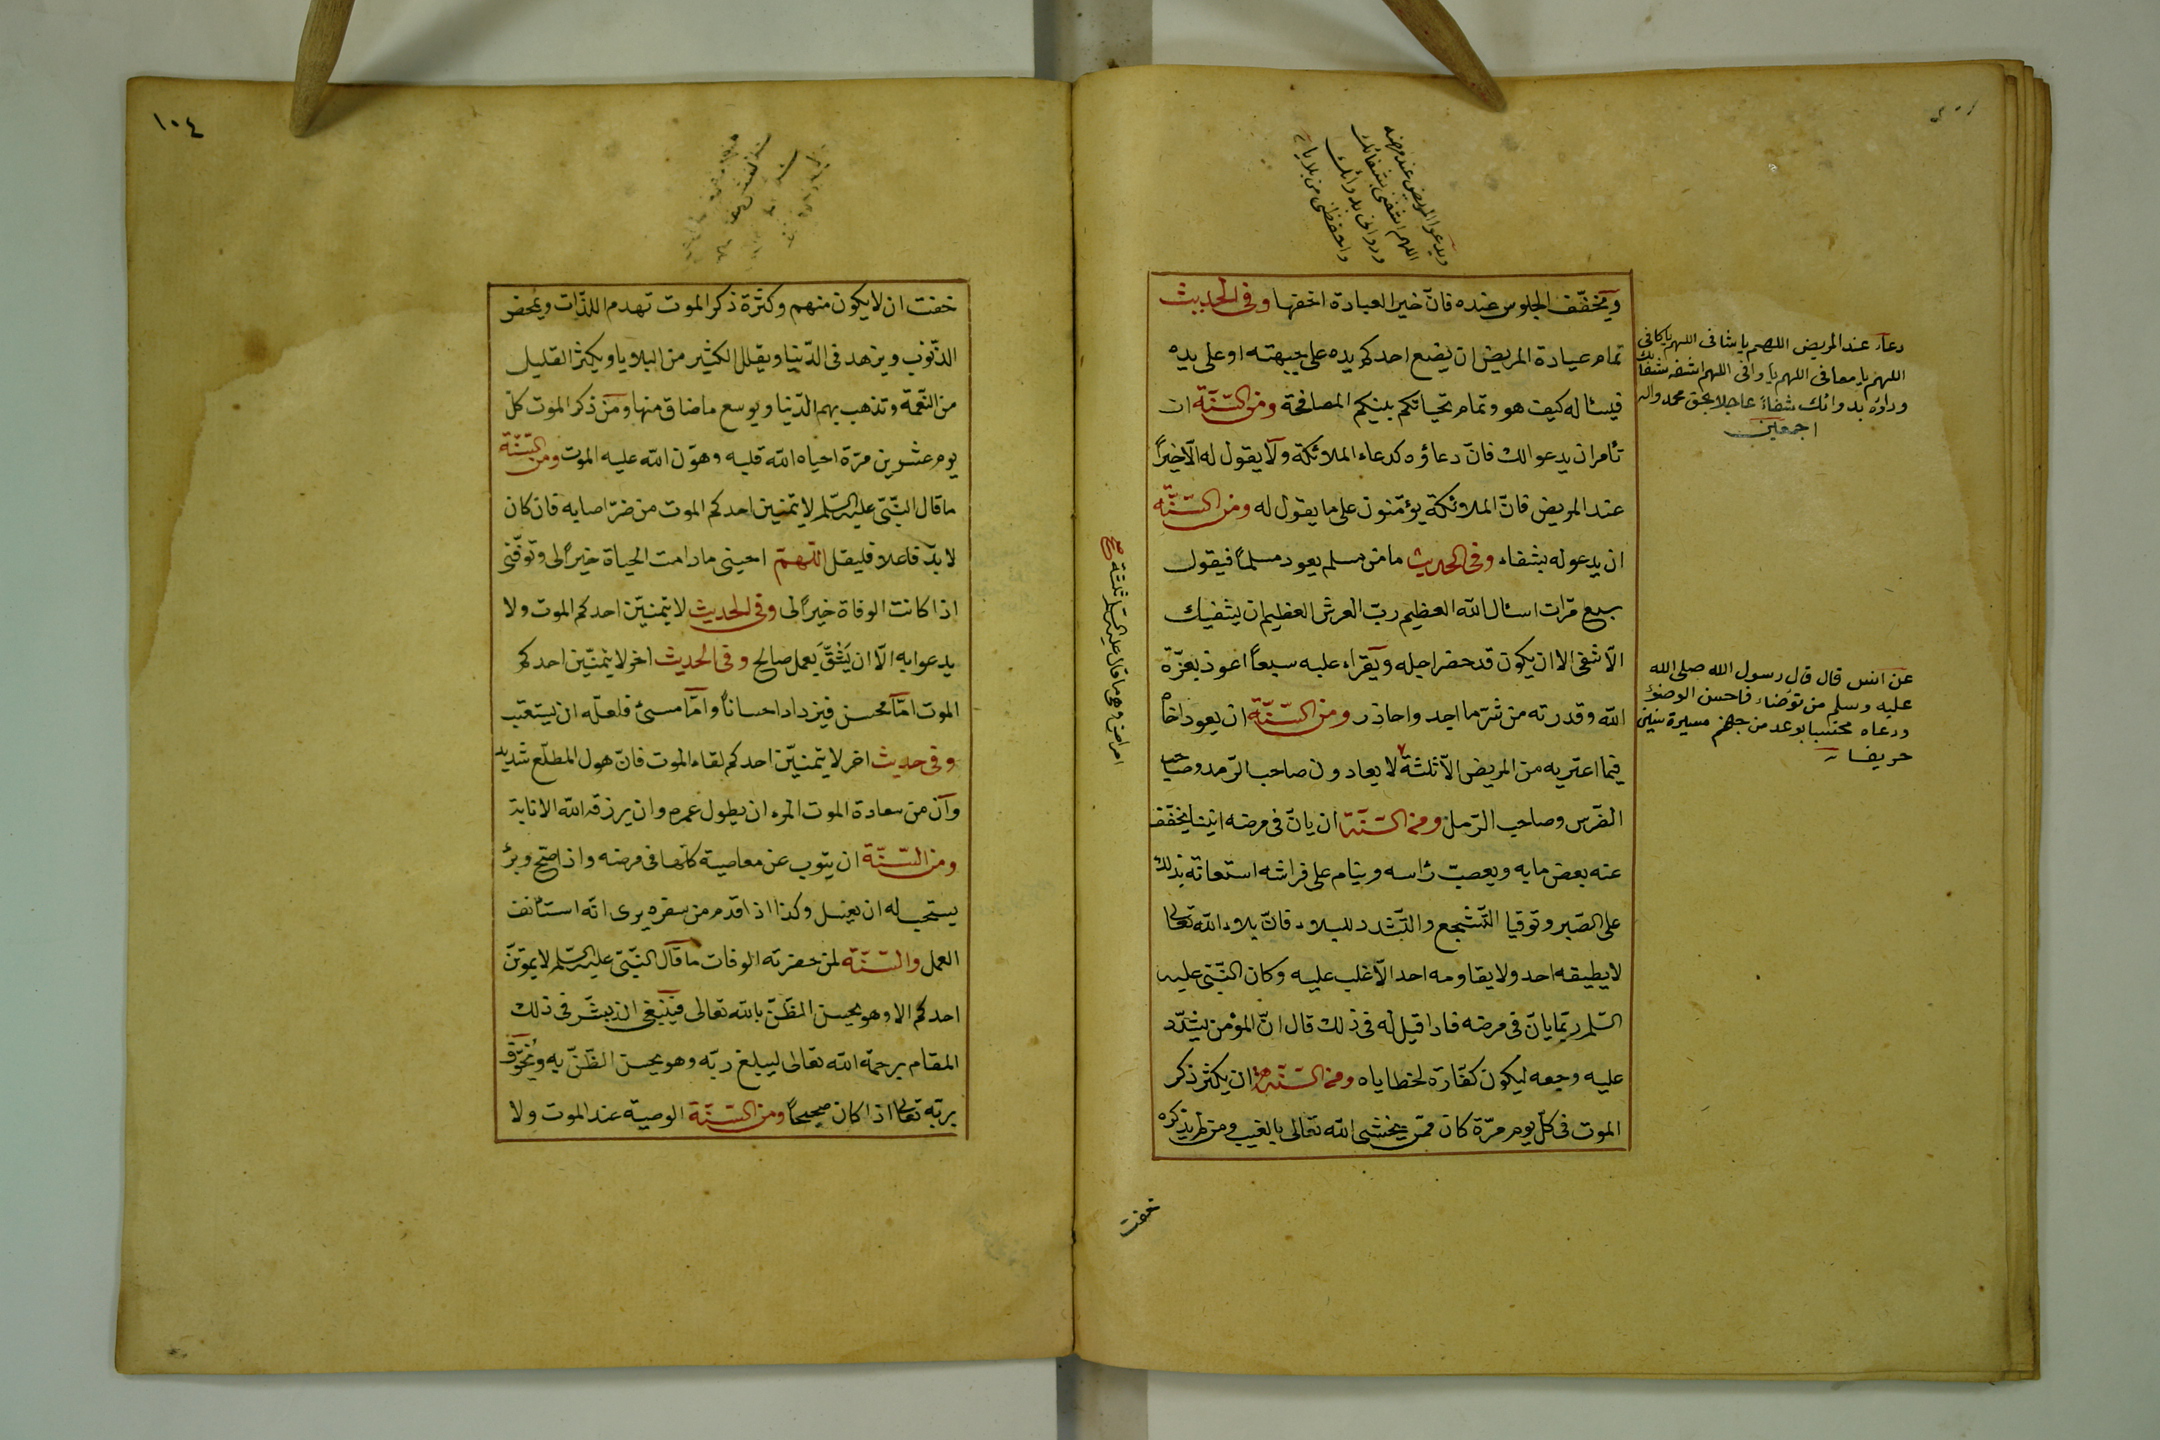 ويدعو المريض عند مرضه
اللهم اشفني بشفائك
وداوني بدوائك
واحفظني من بلايا
ويخفّف الجلوس عنده فانّ خير العيادة اخفها وفي الحديث
تمام عيادة المريض ان يضع احدكم يده على جبهته او على يده
فيسئاله كيف هو وتمام تحياتكم بينكم المصافحة ومن السّنّة ان
تأمر ان يدعو الك فانّ دعاؤه كدعاء الملائكة ولا يقول له الّا خيراً
عند المريض فانّ الملائكة يؤمّنون على ما يقول له ومن السّنّة
ان يدعو له بشفاء وفي الحديث ما من مسلم يعود مسلماً فيقول
سبع مرّات اسئال الله العظيم ربّ العرش العظيم ان يشفيك
الّا شفى الا ان يكون قد حضر اجله ويقراء عليه سبعاً اعوذ بعزّة
الله وقدرته من شرّ ما اجد واحاذر ومن السّنّة ان يعود اخاه
فيما اعتريه من المريض الّا ثلثة لا يعادون صاحب الرّمد وصاحب
الضّرس وصاحب الرّمل ومن السّنّة ان يانّ في مرضه انينا يخفّف
عنه بعض ما به ويعصب رأسه وينام على فراشه استعانة بذلك
على الصّبر وتوقيا التّشجع والتّشدد للبلاء فانّ بلاء الله تعالى
لا يطيقه احد ولا يقاومه احد الّا غلب عليه وكان النّبيّ عليه
السّلم ربّما يانّ في مرضه فاذا قيل له في ذلك قال انّ المؤمن يشدّد
عليه وجعه ليكون كفّارة لخطاياه ومن السّنّة ان يكثر ذكر
الموت في كلّ يوم مرّة كان ممّن يخشى الله تعالى بالغيب ومن لم يذكره
خفت
دعاء عند المريض اللهم يا شافى اللهم يا كافى
اللهم يا معافى اللهم يا وافى اللهم اشفه بشفائك
وداوه بدوائك شفاءً عاجلا بحق محمد واله
اجمعين
عن انس قال قال رسول الله صلى الله
عليه وسلم من توضاء فاحسن الوضوء
وعاد محتسبا بوعد من جهنم مسيرة سنين
خريفا
امراض وهى ما قال عليه السّلم ثلثة صح
١٠٤
خفت ان لا يكون منهم وكثرة ذكر الموت تهدم اللذّات ويمحض
الذّنوب ويزهد فى الدّنيا ويقلل الكثير من البلايا ويكثر القليل
من النّعمة وتذهب بهم الدّنيا ويوسع ما ضاق منها ومن ذكر الموت كلّ
يوم عشرين مرّة احياه الله قلبه وهوّن الله عليه الموت ومن السّنّة
ما قال النّبيّ عليه السّلم لا يتمنين احدكم الموت من ضرّ اصابه فان كان
لا بدّ فاعلا فليقل اللّهمّ احينى ما دامت الحياة خيراً لى وتوفّنى
اذا كانت الوفاة خيراً لى وفى الحديث لا يتمنيّن احدكم الموت ولا
يدعوا به الّا ان يَثِقَ بعمل صالح وفى الحديث اخر لا يتمنيّن احدكم
الموت امّا محسن فيزداد احساناً وامّا مسئ فلعلّه ان يستعتب
وفى حديث اخر لا يتمنيّن احدكم لقاء الموت فانّ هول المطلّع شديد
وانّ من سعادة الموت المرء ان يطول عمره وان يرزقه الله الانابة
ومن السّنّة ان يتوب عن معاصيه كلّها فى مرضه واذا صح وبرئ
يستحب له ان يغتسل وكذا اذا قدم من سفره يرى انّه استأنف
العمل والسّنّة لمن حضرته الوفات ما قال النّبيّ عليه السّلم لا يموتنّ
احدكم الا وهو يحسن الظّنّ بالله تعالى فينبغى ان يبشّر فى ذلك
المقام برحمة الله تعالى ليبلغ ربّه وهو يحسن الظّنّ به ويُخوّف
بربّه تعالى اذا كان صحيحاً ومن السّنّة الوصية عند الموت ولا